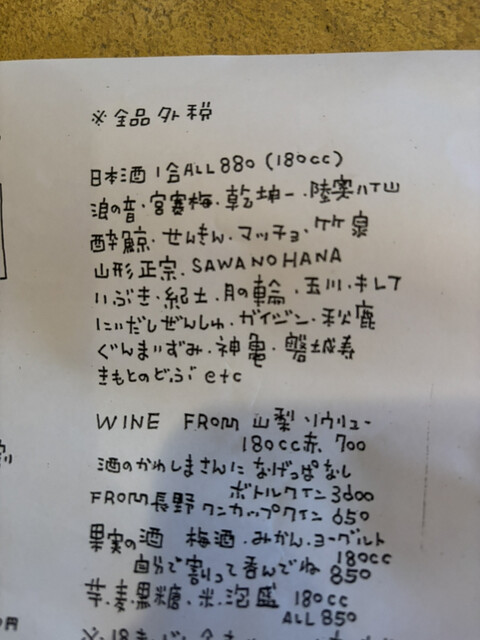 ※全品外税
日本酒1合ALL880(180cc)
浪の音・宮寒梅・乾坤一・陸奥八仙
酔鯨・せんきん・マッチョ・竹泉
山形正宗・SAWANOHANA
いぶき・紀土・月の輪・玉川・キレア
にいだしぜんしゅ・ガイジン・秋鹿
ぐんまいずみ・神亀・磐城寿
きもとのどぶ etc
WINE FROM 山梨 ソウリュー
180cc赤、700
酒のかわしまさんに なげっぱなし
FROM長野 ボトルワイン3600
ワンカップワイン 650
果実の酒 梅酒・みかん・ヨーグルト
自分で割って呑んでね 180cc
850
芋・麦・黒糖・米・泡盛 180cc
ALL 850